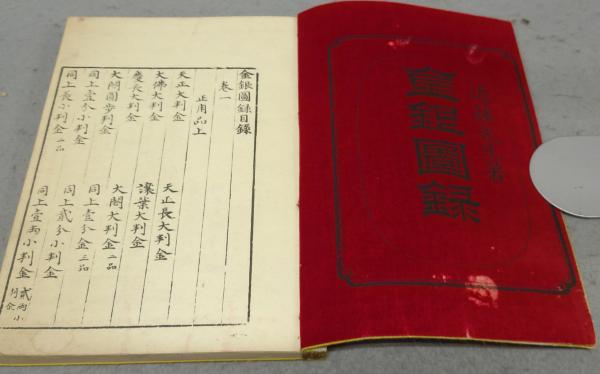 近藤先生著
金銀圖録
金銀圖録目録
卷一
正用品上
天正大判金
天正長大判金
大佛大判金
譲葉大判金
慶長大判金
大閤大判金二品
大閤圓歩判金
同上壹分金三品
同上壹分小判金
同上貳分小判金
同上長小判金二品
同上壹兩小判金